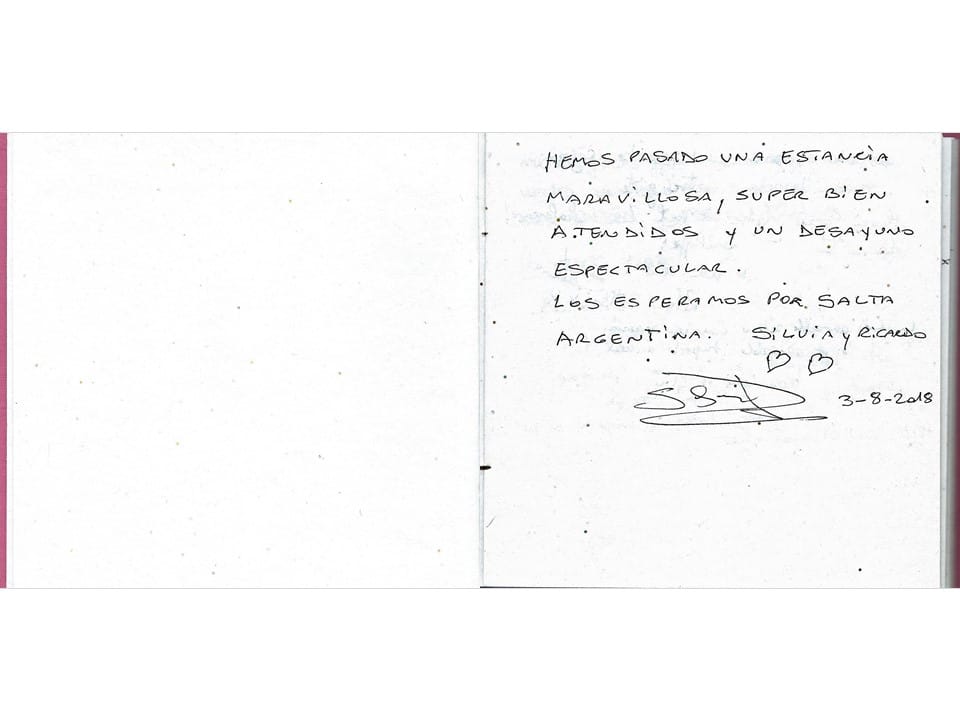 HEMOS PASADO UNA ESTANCIA
MARAVILLOSA, SUPER BIEN
ATENDIDOS Y UN DESAYUNO
ESPECTACULAR.
LOS ESPERAMOS POR SALTA
ARGENTINA. SILVIA y RICARDO
3-8-2018